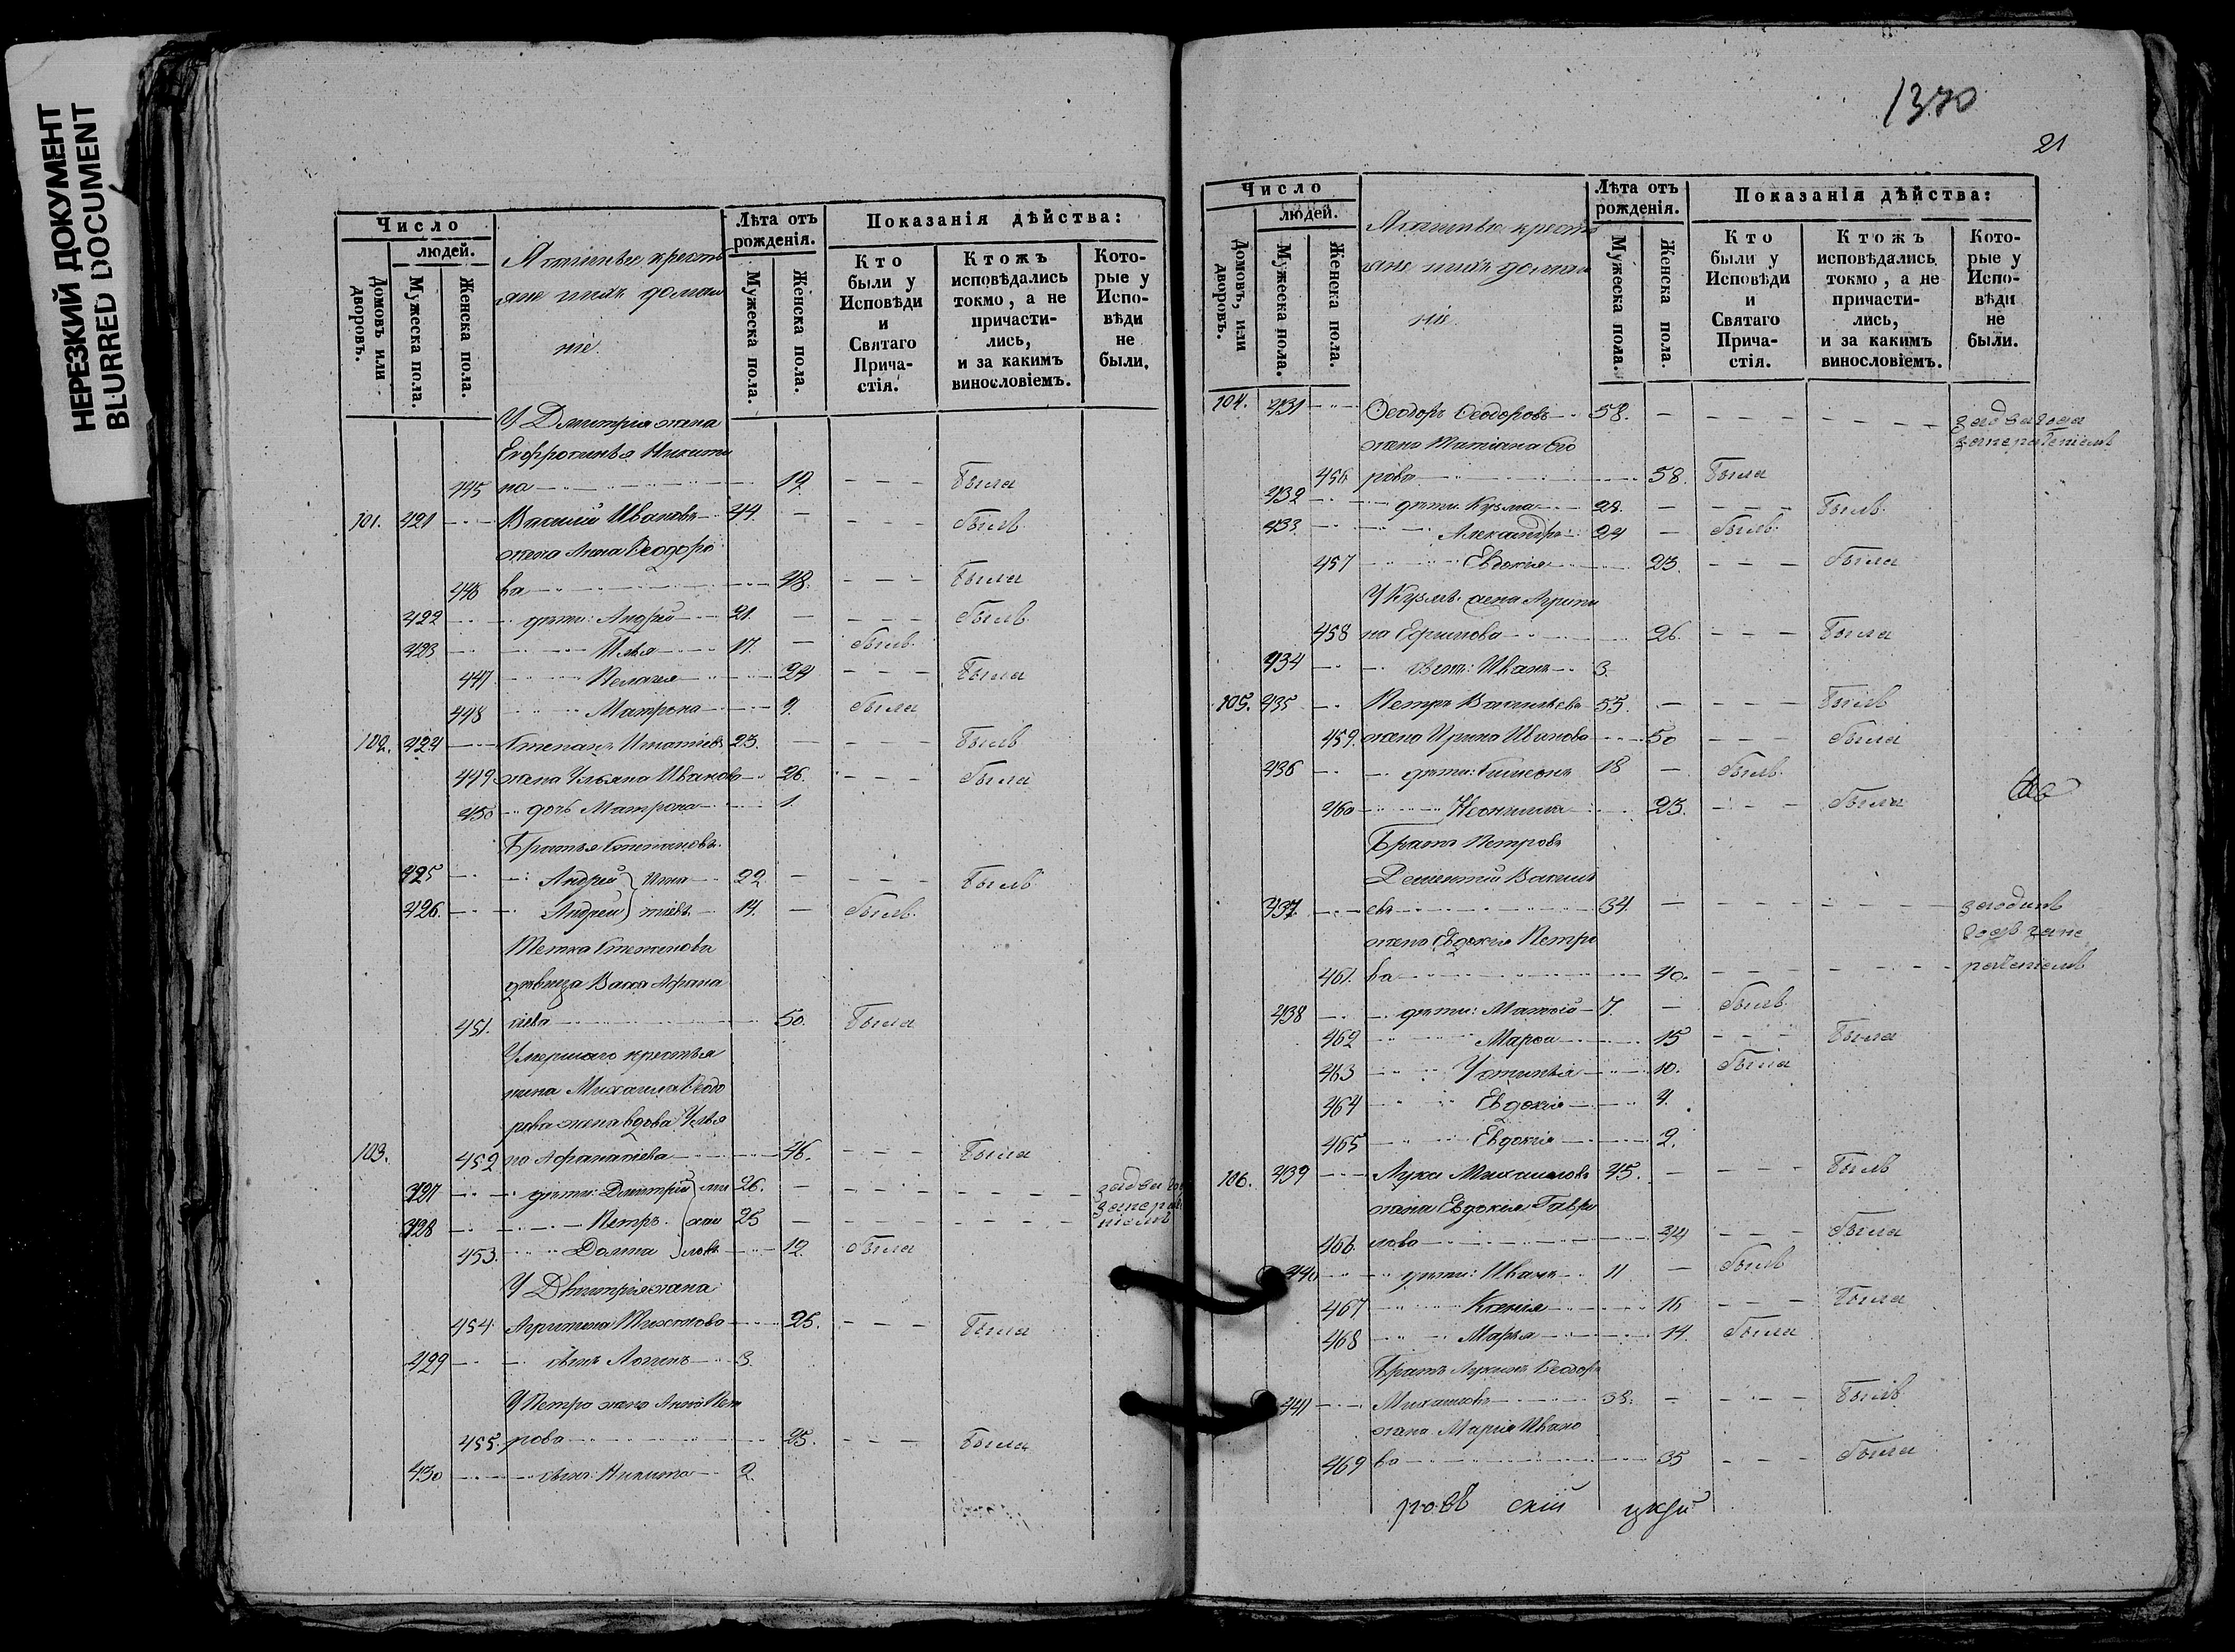 НЕРЕЗКИЙ ДОКУМЕНТ
BLURRED DOCUMENT
Число
людей.
Домовъ или дворовъ.
Мужеска пола.
Женска пола.
крестья
яне ихъ домаш
ніе.
Лѣта отъ рожденія.
Мужеска пола.
Женска пола.
Показанія дѣйства:
Кто были у Исповѣди и Святаго Прича-стія.
Ктожъ исповѣдались токмо, а не причасти-лись, и за какимъ винословіемъ.
Кото-рые у Испо-вѣди не были.
У Дмитрія жена
Евфросинья Никити
445 на 19 была
101. 421 Василій Ивановъ 44. былъ
жена Анна Ѳеодоро
446 ва 48. была
422 дѣти: Андрей 21. былъ
423 Илья 17. былъ
447 Пелагея 24 была
448 Матрона 9. была
102. 424 Степанъ Игнатіевъ 23. былъ
449 жена Ульяна Иванова 26. была
450 дочь Матрона 1.
Братья Степановы
425 Андрей Игна 22 былъ
426. Андрей тіевы 14. былъ
Тетка Степанова
дѣвица Васса Афана
451. сіева 50. была
Умершаго крестья
нина Михаила Ѳеодо
рова жена вдова Улья
103. 452 на Афанасіева 46. была
427 дѣти: Дмитрій ми 26.
428 Петръ хаи 25
453. Домна ловы 12. была
У Дмитрія жена
454 Агрипина Тихонова 25. была
429 сынъ 3.
У Петра жена Анна Пет
455. рова 25. была
430 сынъ: Никита 2.
1370
21
Число
людей.
Домовъ, или дворовъ.
Мужеска пола.
Женска пола.
крестья
яне ихъ домаш
ніе.
Лѣта отъ рожденія.
Мужеска пола.
Женска пола.
Показанія дѣйства:
Кто были у Исповѣди и Святаго Прича-стія.
Ктожъ исповѣдались токмо, а не причасти-лись, и за какимъ винословіемъ.
Кото-рые у Испо-вѣди не были.
104. 431 Ѳеодоръ Ѳеодоровъ 58. за два года
жена Татіана Его за нерадѣніемъ
456 рова 58. была
432 дѣти: Кузма 28. былъ
433 Александръ 24 былъ
457 Евдокія 23. была
У Кузмы жена Агрипи
458 на Ефимова 26. была
434 сынъ: Иванъ 3.
105. 435 Петръ Васильевъ 55. былъ
459. жена Ирина Иванова 50 была
436 дѣти: Симеонъ 18 былъ
460 Неонила 23. была
Братъ Петровъ
Дементій Василь
437. евъ 34. за одинъ
жена Евдокія Петро годъ за не
461. ва 40. радѣніемъ
438 дѣти: Матѳей 7. былъ
462 Марѳа 15 была
463 Устинья 10. была
464 Евдокія 4.
465 Евдокія 2.
106. 439 Лука Михаиловъ 45. былъ
жена Евдокія Гаври
466. лова 44 была
440 дѣти: Иванъ 11 былъ
467 Ксенія 16 была
468 Марья 14. была
Братъ Лукинъ Ѳеодоръ
441 Михаиловъ 38. былъ
жена Марія Ивано
469 ва 35 была